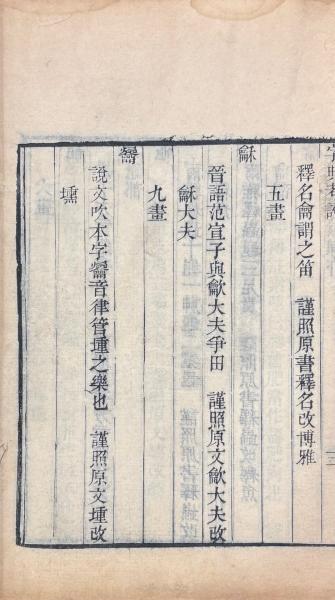 釋名龠謂之笛　謹照原書釋名改博雅
五畫
龢
晉語范宣子與大夫爭田　謹照原文大夫改
龢大夫
九畫
說文吹本字音律管壎之樂也　謹照原文壎改
壎